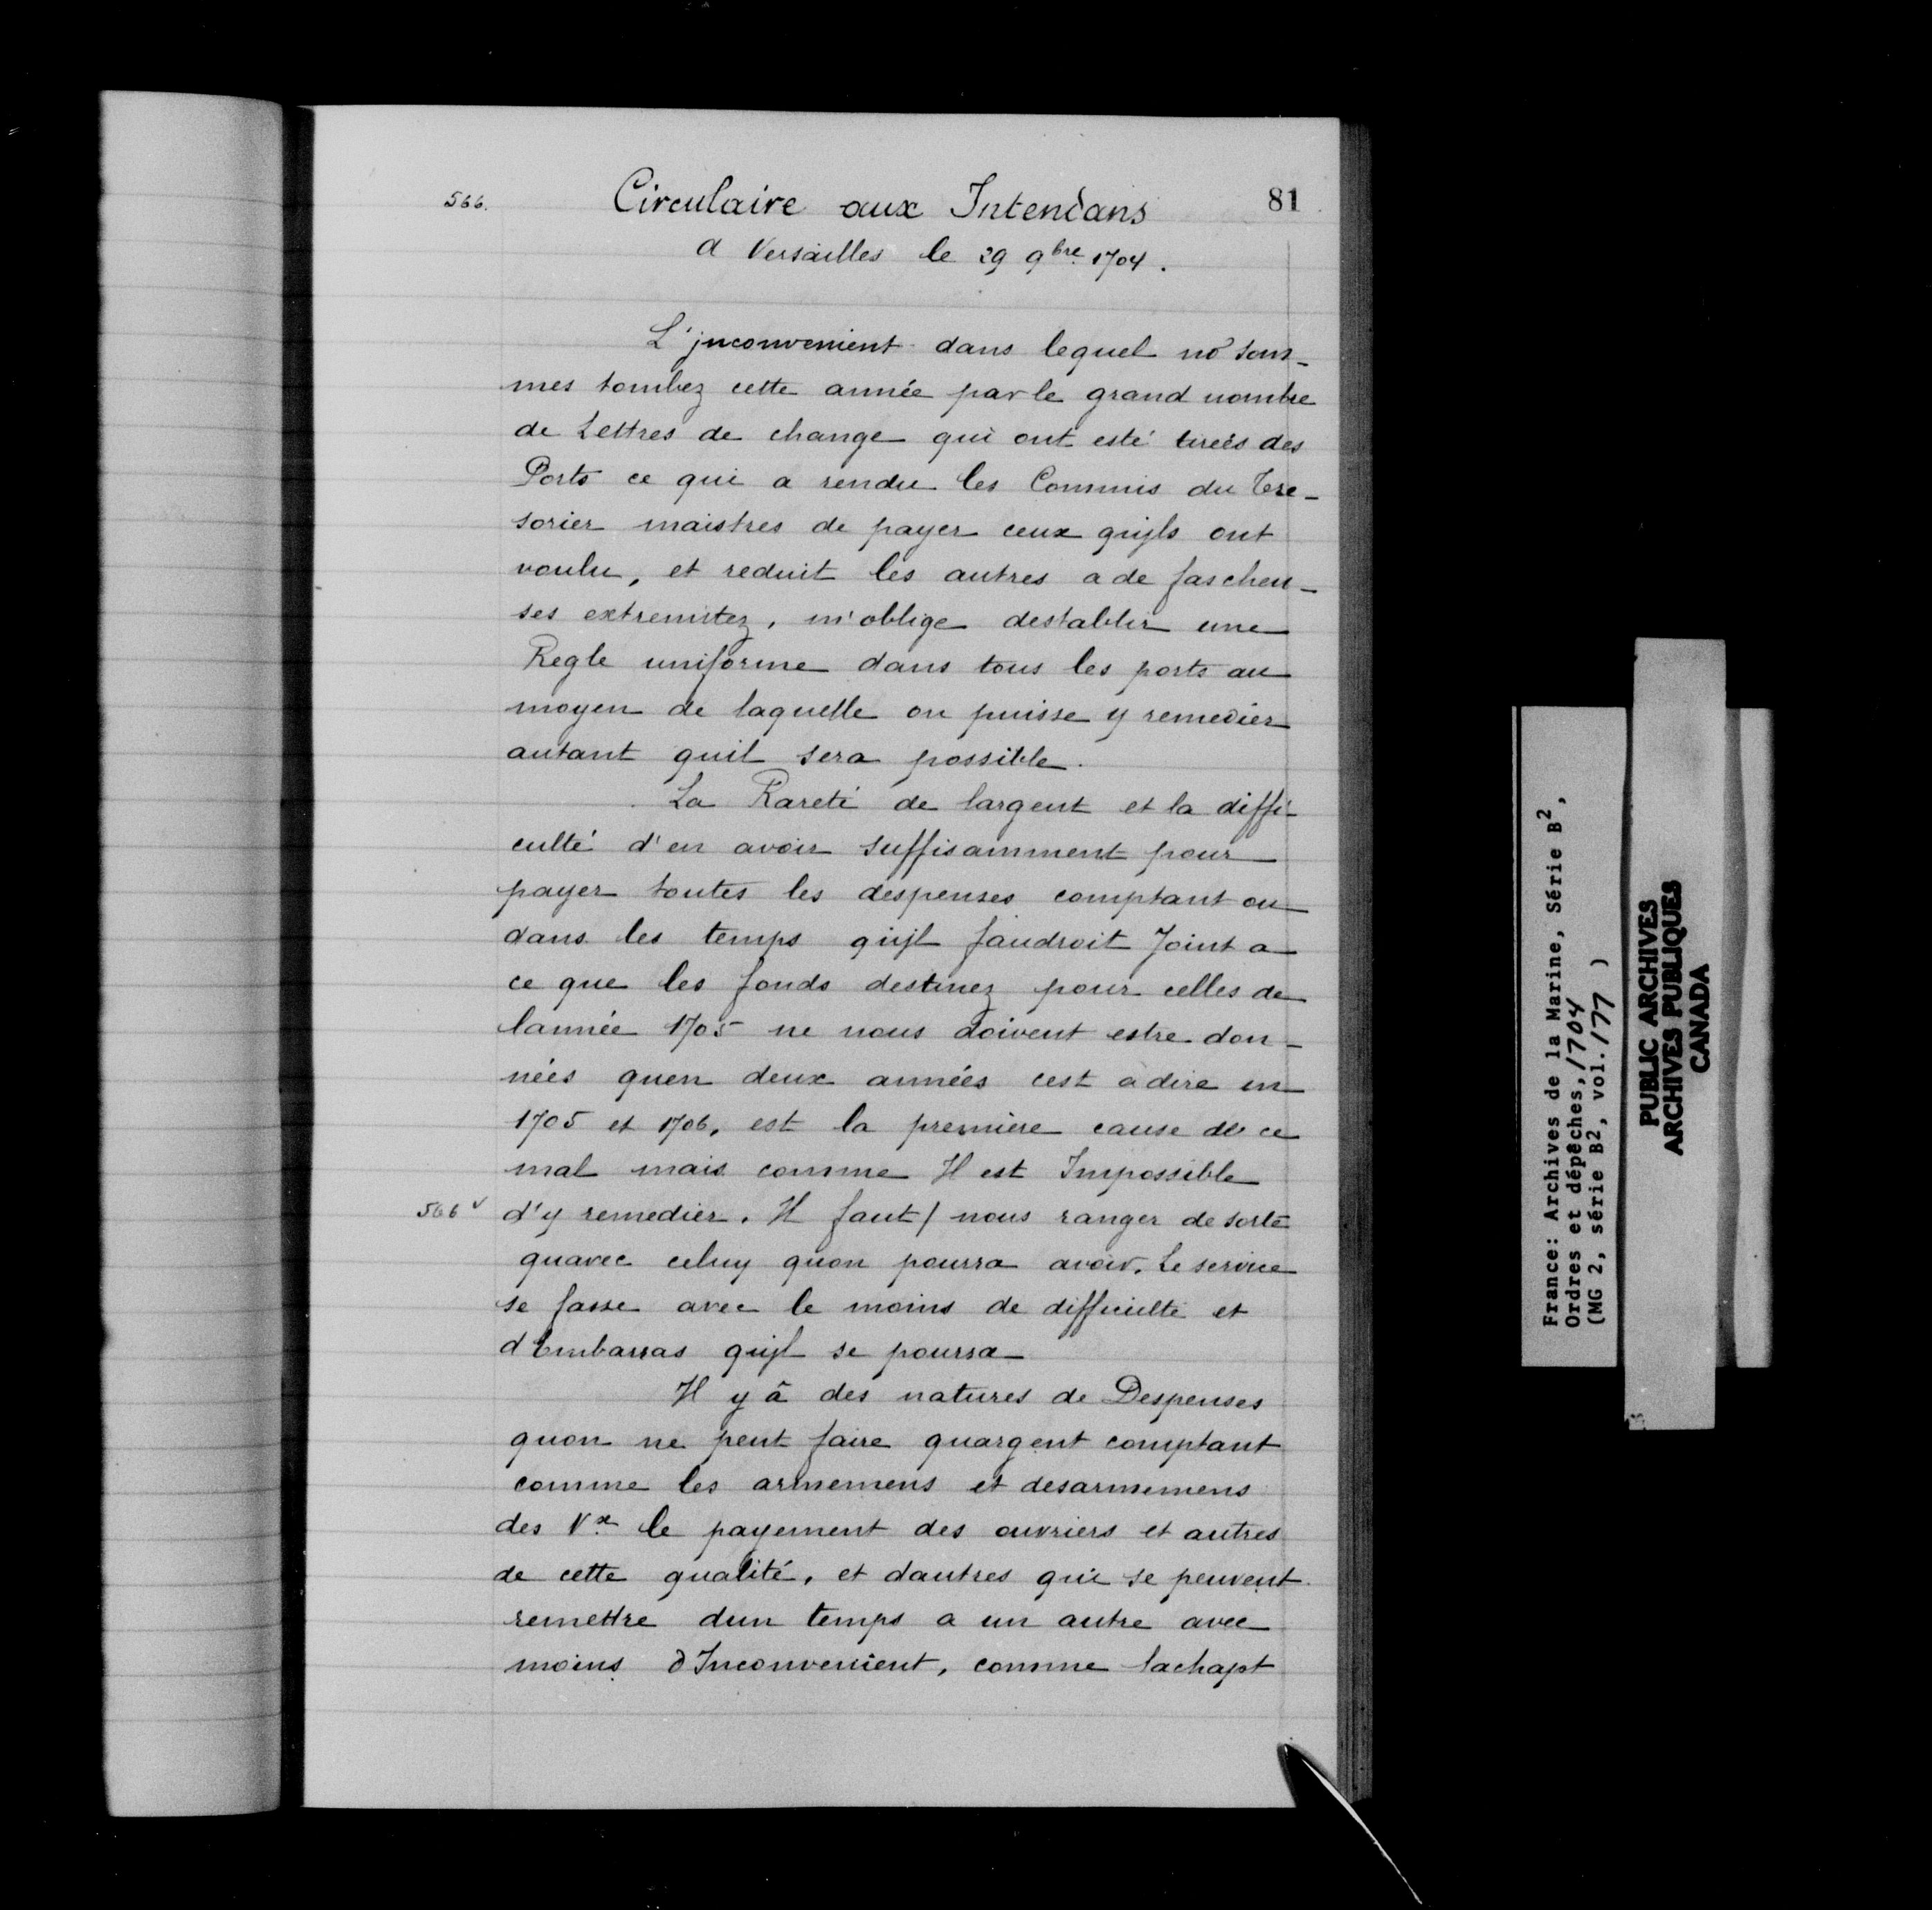 566.
Circulaire aux Intendans
81
A Versailles le 29 9bre 1704.
L'jnconvenient dans lequel nō som-
mes tombez cette année par le grand nombre
de Lettres de change qui ont esté tireés des
Ports ce qui a rendu les Commis du Tre-
sorier maistres de payer ceux qujls ont
voulu, et reduit les autres a de fascheu-
ses extremitez, m'oblige destablir une
Regle uniforme dans tous les ports au
moyen de laquelle on puisse y remedier
autant quil sera possible.
La Rareté de largent et la diffi-
culté d'en avoir suffisamment pour
payer toutes les despenses comptant ou
dans les temps qujl faudroit Joint a
ce que les fonds destinez pour celles de
lannée 1705 ne nous doivent estre don-
nées quen deux années cest a dire en
1705 et 1706, est la premiere cause de ce
mal mais comme Il est Impossible
566 v
d'y remedier. Il faut / nous ranger de sorte
quavec celuy quon pourra avoir. Le service
se fasse avec le moins de difficulté et
d'Embarras qujl se pourra
Il y â des natures de Despenses
quon ne peut faire quargent comptant
comme les armemens et desarmemens
des Vx le payement des ouvriers et autres
de cette qualité, et dautres qui se peuvent
remettre dun temps a un autre avec
moins d'Inconvenient, comme lachapt
France: Archives de la Marine, Série B2,
Ordres et dépêches, 1704
(MG 2, série B2, vol. 177 )
PUBLIC ARCHIVES
ARCHIVES PUBLIQUES
CANADA